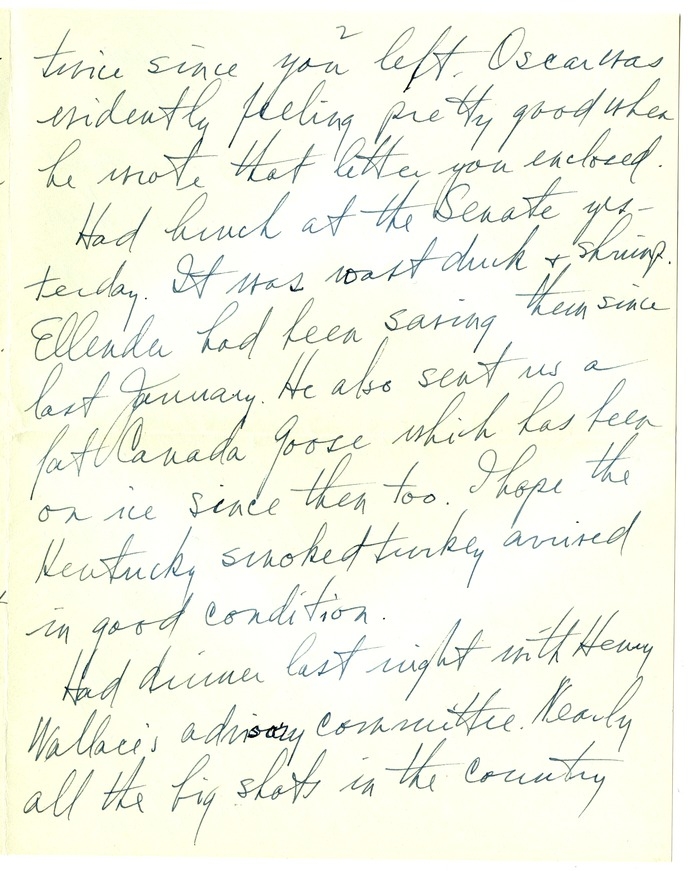 2
twice since you left. Oscar was
evidently feeling pretty good when
he wrote that letter you enclosed.
Had lunch at the Senate yes-
terday. It was roast duck + shrimp.
Ellender had been saving them since
last January. He also sent us a
fat Canada goose which has been
on ice since then too. I hope the
Kentucky smoked turkey arrived
in good condition.
Had dinner last night with Henry
Wallace's advisory committee. Nearly
all the big shots in the country